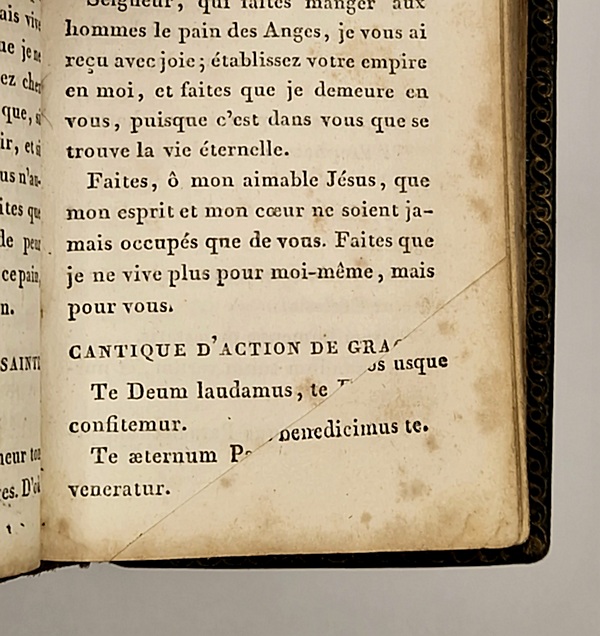 ais vive
ue je ne
ez cher
que, si
ir, et si
us n'au-
ites que
de peur
ce pain,
n.
SAINTE
neur ton
res. D'où
Seigneur, qui faites manger aux
hommes le pain des Anges, je vous ai
reçu avec joie; établissez votre empire
en moi, et faites que je demeure en
vous, puisque c'est dans vous que se
trouve la vie éternelle.
Faites, ô mon aimable Jésus, que
mon esprit et mon cœur ne soient ja-
mais occupés que de vous. Faites que
je ne vive plus pour moi-même, mais
pour vous.
CANTIQUE D'ACTION DE GRA
usque
Te Deum laudamus, te
confitemur.
benedicimus te.
Te æternum
veneratur.